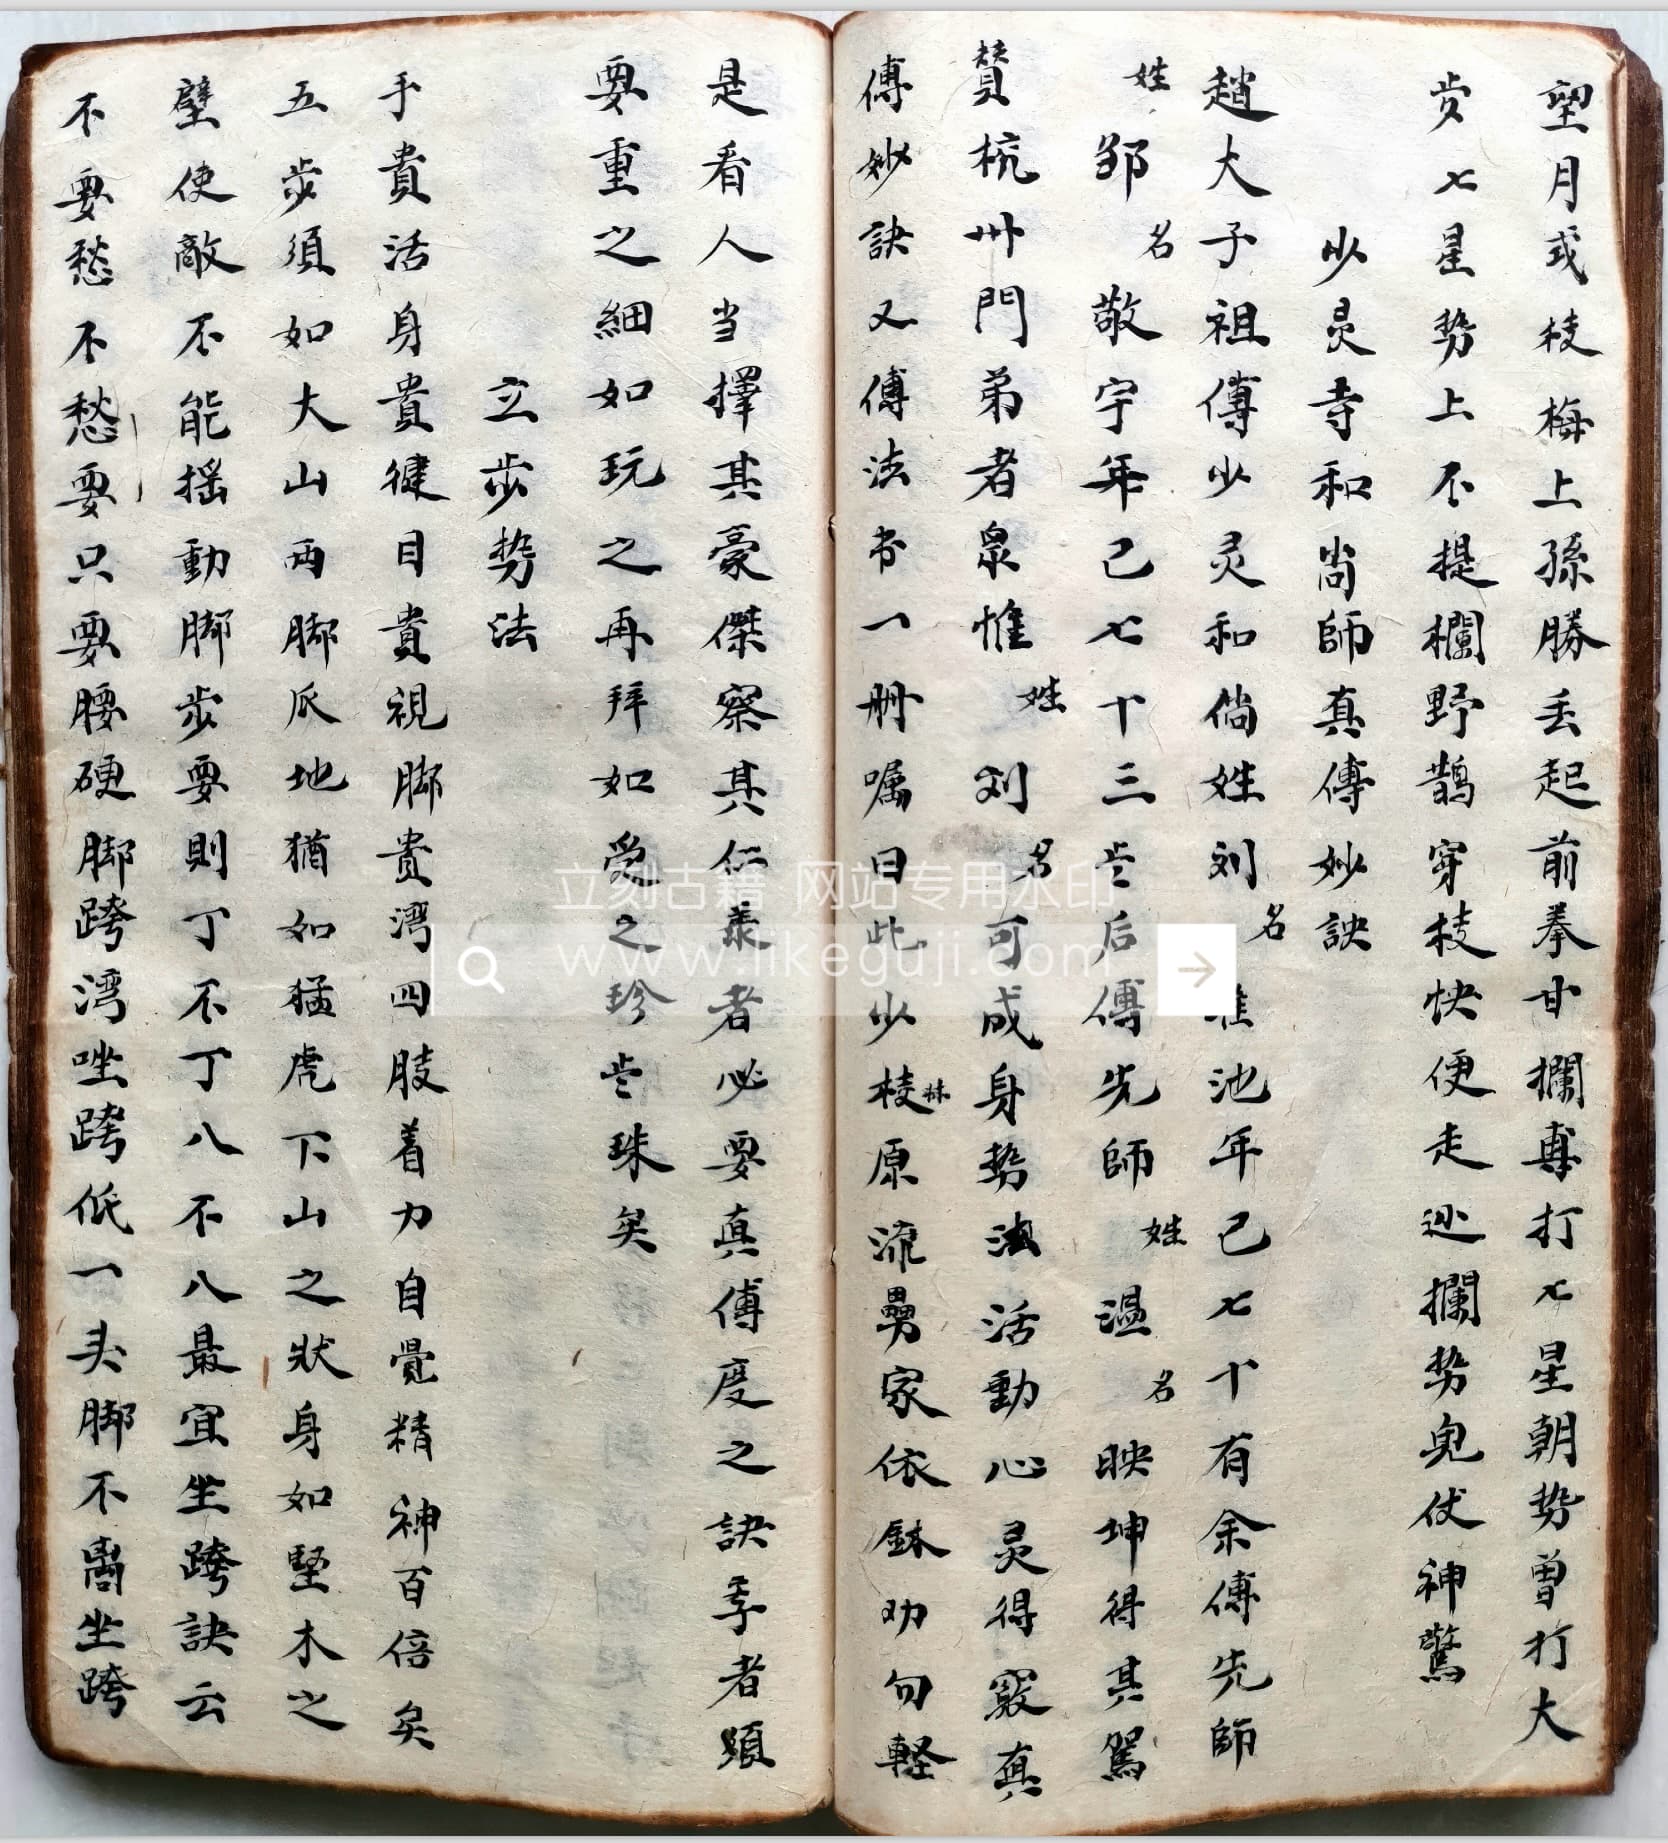 望月或枝梅上孫勝丢起前拳甘攔専打七星朝势曽打大
步七星势上不提欄野鵲穿枝快便走迯攔势鬼伏神驚
少灵寺和尚師真傳妙訣
趙大子祖傳少灵和倘姓刘名 池年己七十有余傳先師
姓邹名敬宇年己七十三岁后傳先師姓温名映坤得其駕
賛杭州門弟者泉惟姓刘名可成身势法活動心灵得竅真
傳妙訣又傳法书一册嘱曰此少枝林原流勇家依缽叻句軽
是看人当擇其豪傑察其仁義者必要真傳度之訣季者須
要重之細如玩之再拜如受之珍岂珠矣
立步势法
手貴活身貴健目貴視脚贵湾四肢着力自覺精神百倍矣
五步須如大山両脚爪地猶如猛虎下山之狀身如堅木之
壁使敵不能揺動脚步要則丁不丁八不八最宜坐跨訣云
不要愁不愁要只要腰硬脚跨湾唑跨低一头脚不离坐跨
立刻古籍 网站专用水印
www.likeguji.com